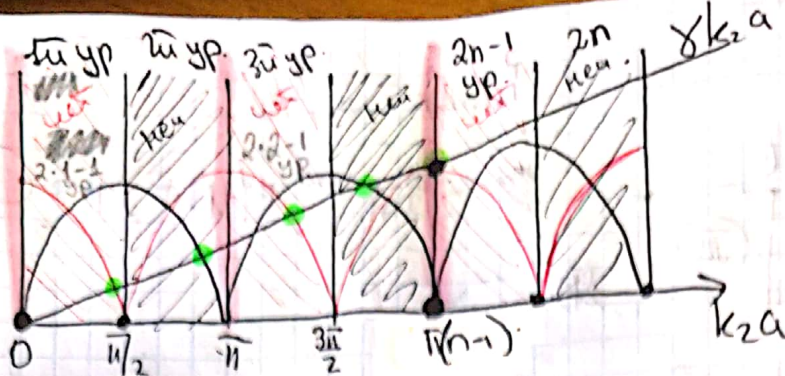 1й ур
2й ур.
3й ур.
2n-1
ур.
2n
неч.
γk₂a
чет
неч
чет
неч
чет
2·1-1
ур
2·2-1
ур
0
π/2
π
3π/2
π(n-1)
k₂a